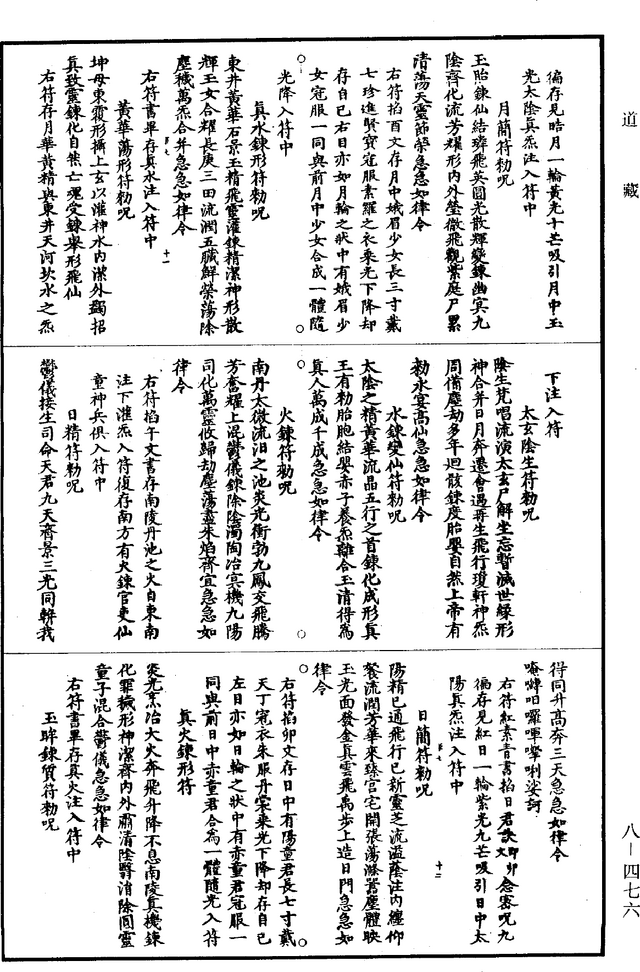 道藏
徧存見皓月一輪黃光十芒吸引月中玉
光太陰真炁注入符中
月簡符勑呪
玉胎鍊仙結璘飛英圓光散輝變鍊幽冥九
陰齊化流芳耀形內外瑩徹飛觀紫庭尸累
清蕩天靈節榮急急如律令
右符掐酉文存月中娥眉少女長三寸戴
七珍進賢寶冠服素羅之衣乘光下降却
存自己右目亦如月輪之狀中有娥眉少
女冠服一同與前月中少女合成一體隨
光降入符中
真水鍊形符勑呪
東井黃華石景玉精飛靈灌鍊精潔神形散
輝玉女合耀長庚三田流潤五臟解榮蕩除
塵穢萬炁合并急急如律令
右符書畢存真水注入符中
黃華蕩形符勑呪
坤母東覆形攝上玄以灌神水內潔外蠲招
真致靈鍊化自然亡魂受鍊舉形飛仙
右符存月華黃精與東井天河坎水之炁
十一
下注入符
太玄陰生符勑呪
陰生梵唱流演太玄尸解坐忘暫滅世緣形
神合并日月奔還會遇再生飛行瓊軒神炁
周備塵劫多年迴骸鍊度胎嬰自然上帝有
勑永宴高仙急急如律令
水鍊變仙符勑呪
太陰之精黃華流晶五行之首鍊化成形真
王有勑胎胞結嬰赤子養炁離合玉清得為
真人萬成千成急急如律令
火鍊符勑呪
南丹太微流汨之池炎光衝勃九鳳交飛騰
芳奮耀上混鬱儀鍊除陰濁陶冶㝠機九陽
司化萬靈攸歸劫塵蕩盡朱焰齊宜急急如
律令
右符掐午文書存南陵丹池之火自東南
注下滙炁入符復存南方有火鍊官吏仙
童神兵俱入符中
日精符勑呪
鬱儀接生司命天君九天齊景三光同軿我
得同升高奔三天急急如律令
唵㗚呬囉唓嚤唎娑訶
右符紅素青書掐日君訣卯卯文念密呪九
徧存見紅日一輪紫光九芒吸引日中太
陽真炁注入符中
日簡符勑呪
十二
陽精已通飛行已新靈芝流溢蔭注內纏仰
餐流潤芳華來臻宮宅開張蕩滌囂塵體映
玉光面發金真雲飛禹步上造日門急急如
律令
右符掐卯文存日中有陽童君長七寸戴
天丁冠衣朱服丹裳乘光下降却存自己
左目亦如日輪之狀中有赤童君冠服一
同與前日中赤童君合為一體隨光入符
真火鍊形符
炎光焦冶大火奔飛升降不息南陵真機鍊
化罪穢形神潔齊內外肅清陰翳消除圓靈
童子混合鬱儀急急如律令
右符書畢存真火注入符中
玉眸鍊質符勑呪
八－四七六